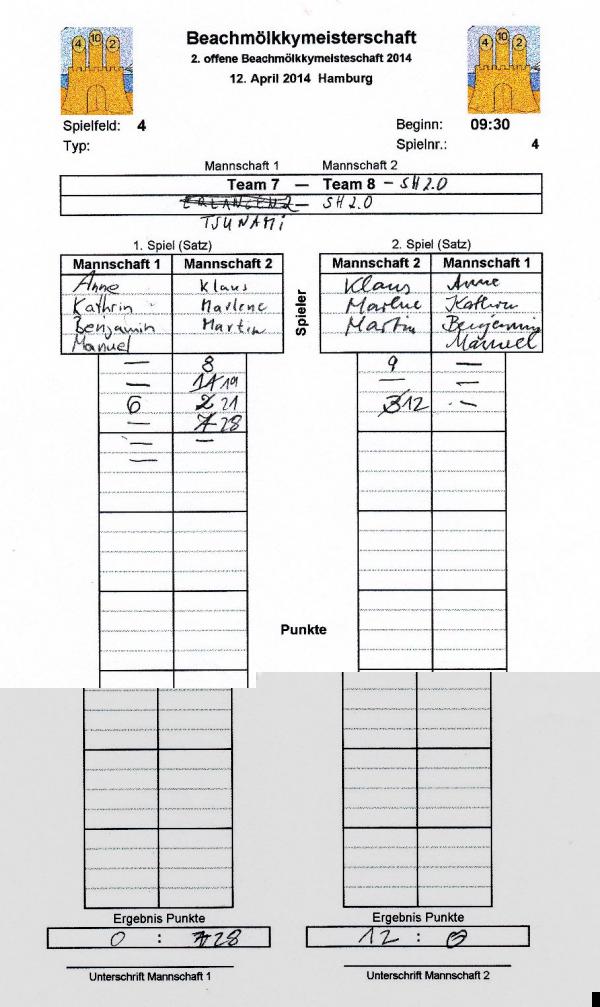 4 10 2
Beachmölkkymeisterschaft
4 10 2
2. offene Beachmölkkymeisteschaft 2014
12. April 2014 Hamburg
Spielfeld: 4
Beginn: 09:30
Typ:
Spielnr.: 4
Mannschaft 1 Mannschaft 2
Team 7 — Team 8 - SH 2.0
ERLANGEN 2 — SH 2.0
TSUNAMi
1. Spiel (Satz) 2. Spiel (Satz)
Mannschaft 1 Mannschaft 2 Mannschaft 2 Mannschaft 1
Anne Klaus Klaus Anne
Kathrin Marlene Marlene Kathrin
Benjamin Martin Martin Benjamin
Manuel Manuel
Spieler
— 8 9 —
— 19 — —
6 2 21 3 12 —
— 7 28
— —
—
Punkte
Ergebnis Punkte Ergebnis Punkte
0 : 7 28 12 : 0
Unterschrift Mannschaft 1 Unterschrift Mannschaft 2